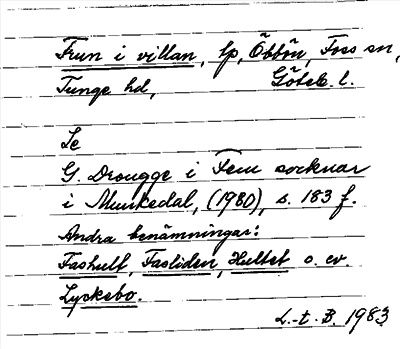 Frun i villan, lp, Öbbön, Foss sn,
Tunge hd, Göteb. l.
Se
G. Drougge i Fem socknar
i Munkedal, (1980), s. 183 f.
Andra benämningar:
Fashult, Fasliden, Hultet o. ev.
Lyckebo.
L.-t. B. 1983